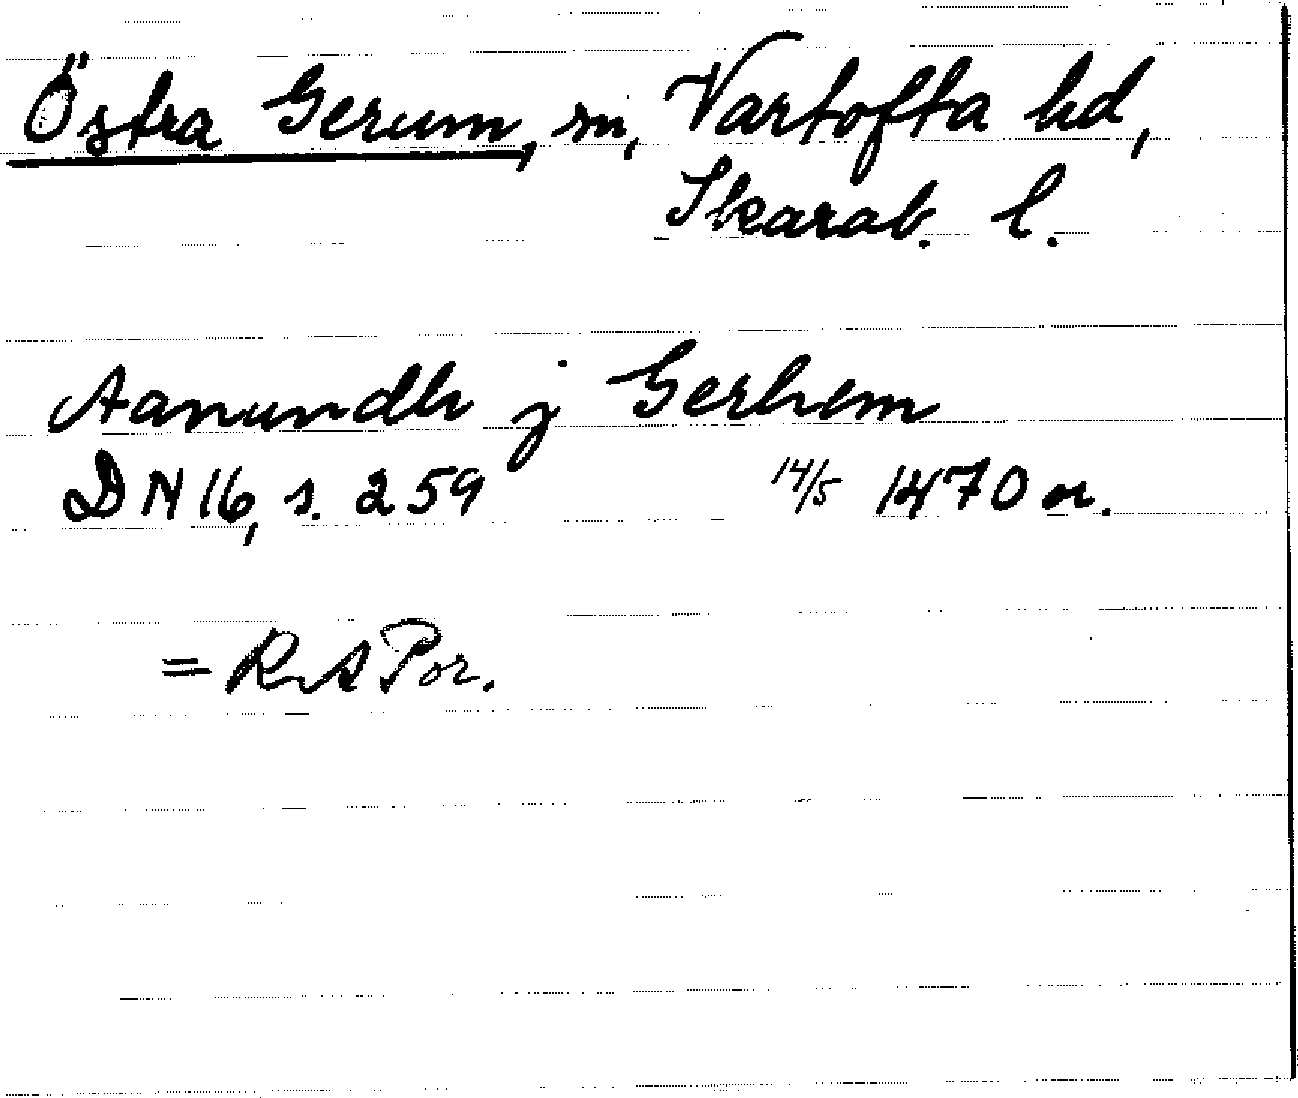 Östra Gerum, sn, Vartofta hd,
Skarab. l.
Aanundh j Gerhem
DN 16, s. 259 14/5 1470 or.
= RAPor.